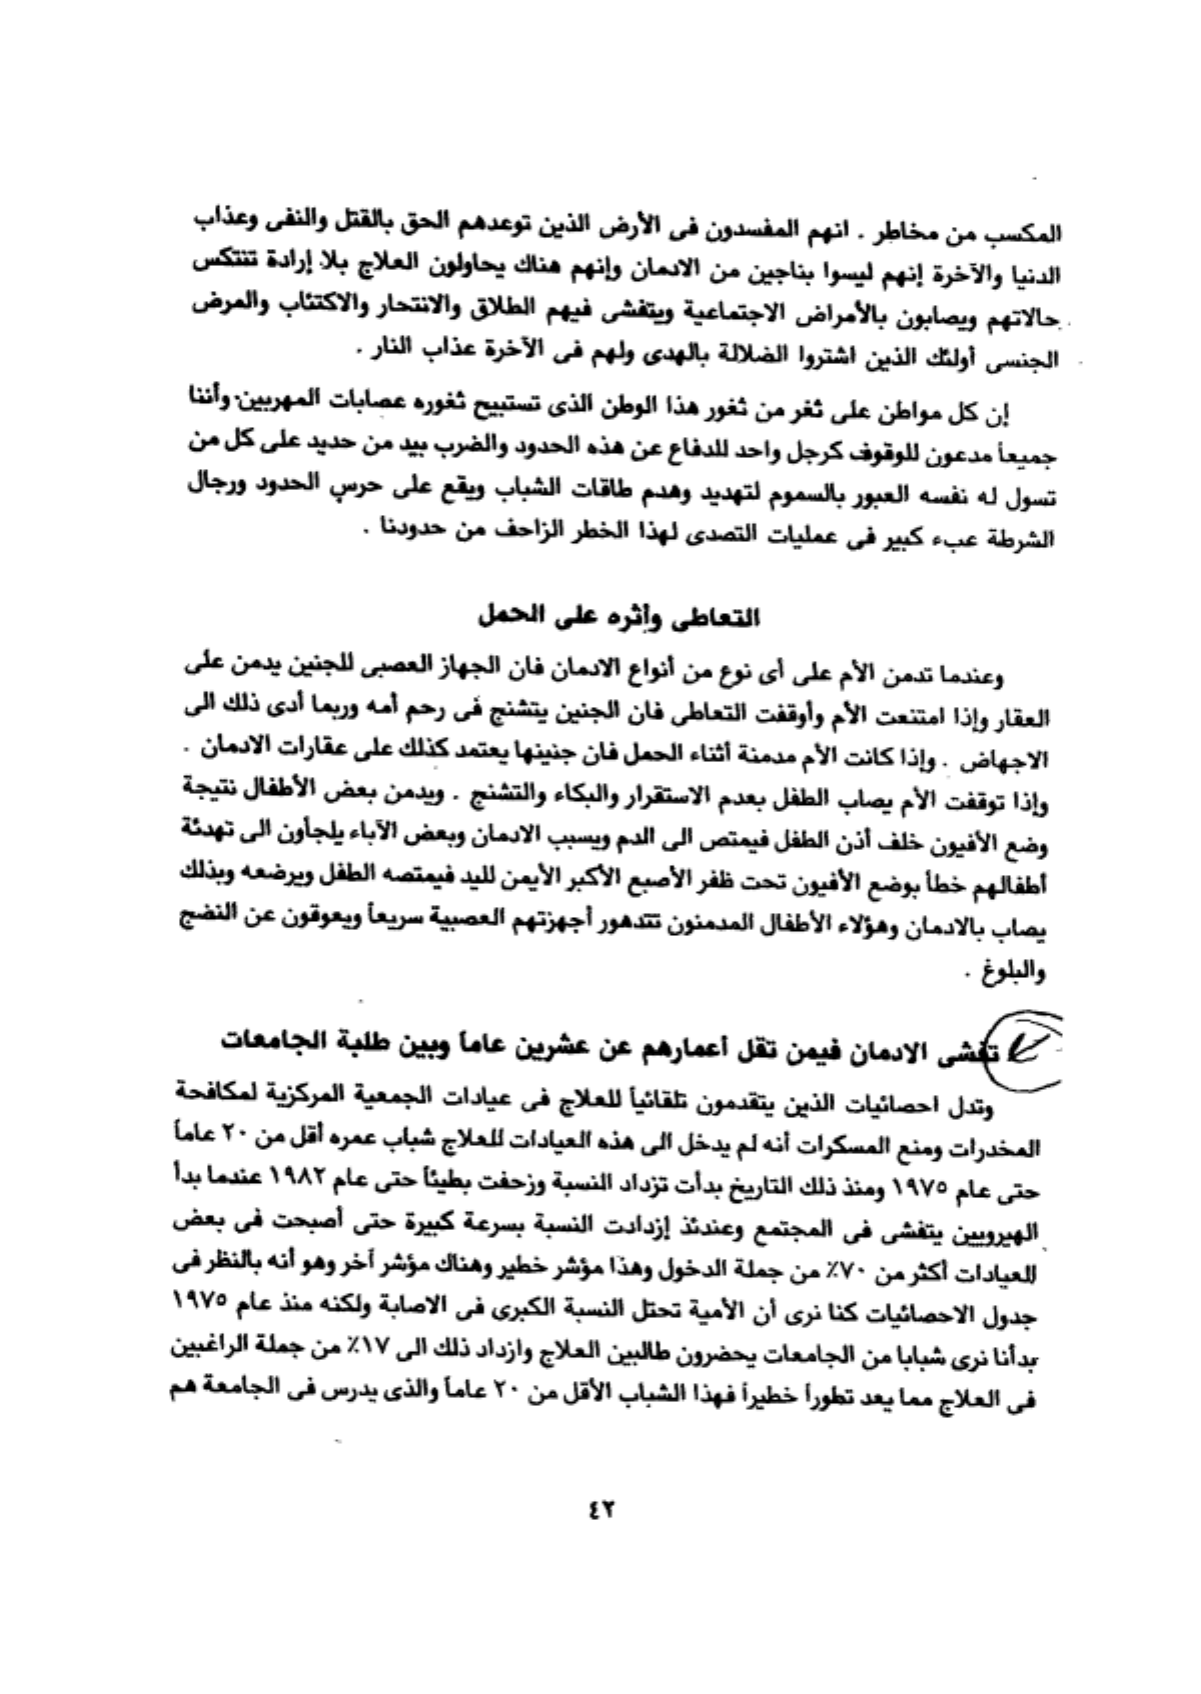 المكسب من مخاطر . انهم المفسدون فى الأرض الذين توعدهم الحق بالقتل والنفى وعذاب
الدنيا والآخرة إنهم ليسوا بناجين من الادمان وإنهم هناك يحاولون العلاج بلا إرادة تنتكس
حالاتهم ويصابون بالأمراض الاجتماعية ويتفشى فيهم الطلاق والانتحار والاكتئاب والمرض
الجنسى أولئك الذين اشتروا الضلالة بالهدى ولهم فى الآخرة عذاب النار .
إن كل مواطن على ثغر من ثغور هذا الوطن الذى تستبيح ثغوره عصابات المهربين وأننا
جميعاً مدعون للوقوف كرجل واحد للدفاع عن هذه الحدود والضرب بيد من حديد على كل من
تسول له نفسه العبور بالسموم لتهديد وهدم طاقات الشباب ويقع على حرس الحدود ورجال
الشرطة عبء كبير فى عمليات التصدى لهذا الخطر الزاحف من حدودنا .
التعاطى وأثره على الحمل
وعندما تدمن الأم على أى نوع من أنواع الادمان فان الجهاز العصبى للجنين يدمن على
العقار وإذا امتنعت الأم وأوقفت التعاطى فان الجنين يتشنج فى رحم أمه وربما أدى ذلك الى
الاجهاض . وإذا كانت الأم مدمنة أثناء الحمل فان جنينها يعتمد كذلك على عقارات الادمان .
وإذا توقفت الأم يصاب الطفل بعدم الاستقرار والبكاء والتشنج . ويدمن بعض الأطفال نتيجة
وضع الأفيون خلف أذن الطفل فيمتص الى الدم ويسبب الادمان وبعض الآباء يلجأون الى تهدئة
أطفالهم خطأ بوضع الأفيون تحت ظفر الأصبع الأكبر الأيمن لليد فيمتصه الطفل ويرضعه وبذلك
يصاب بالادمان وهؤلاء الأطفال المدمنون تتدهور أجهزتهم العصبية سريعاً ويعوقون عن النضج
والبلوغ .
تفشى الادمان فيمن تقل أعمارهم عن عشرين عاماً وبين طلبة الجامعات
وتدل احصائيات الذين يتقدمون تلقائياً للعلاج فى عيادات الجمعية المركزية لمكافحة
المخدرات ومنع المسكرات أنه لم يدخل الى هذه العيادات للعلاج شباب عمره أقل من ٢٠ عاماً
حتى عام ١٩٧٥ ومنذ ذلك التاريخ بدأت تزداد النسبة وزحفت بطيئاً حتى عام ١٩٨٢ عندما بدأ
الهيرويين يتفشى فى المجتمع وعندئذ إزدادت النسبة بسرعة كبيرة حتى أصبحت فى بعض
العيادات أكثر من ٧٠٪ من جملة الدخول وهذا مؤشر خطير وهناك مؤشر آخر وهو أنه بالنظر فى
جدول الاحصائيات كنا نرى أن الأمية تحتل النسبة الكبرى فى الاصابة ولكنه منذ عام ١٩٧٥
بدأنا نرى شبابا من الجامعات يحضرون طالبين العلاج وازداد ذلك الى ١٧٪ من جملة الراغبين
فى العلاج مما يعد تطوراً خطيراً فهذا الشباب الأقل من ٢٠ عاماً والذى يدرس فى الجامعة هم
٤٢